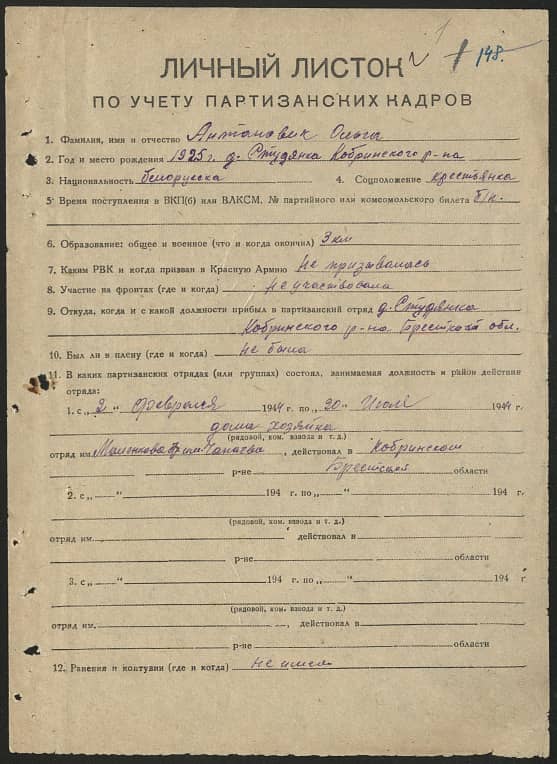 148.
ЛИЧНЫЙ ЛИСТОК
ПО УЧЕТУ ПАРТИЗАНСКИХ КАДРОВ
1. Фамилия, имя и отчество Антонович Ольга
2. Год и место рождения 1925 г. д. Студянка Кобринского р-на
3. Национальность белорусска 4. Соцположение крестьянка
5. Время поступления в ВКП(б) или ВЛКСМ, № партийного или комсомольского билета б/п.
6. Образование: общее и военное (что и когда окончил) 3 кл
7. Каким РВК и когда призван в Красную Армию не призывалась
8. Участие на фронтах (где и когда) Не участвовала
9. Откуда, когда и с какой должности прибыл в партизанский отряд д. Студянка
Кобринского р-на Брестской обл.
10. Был ли в плену (где и когда) не была
11. В каких партизанских отрядах (или группах) состоял, занимаемая должность и район действия
отряда:
1. с „2" Февраля 1944 г. по „20" Июля 1944 г.
дома хозяйка
(рядовой, ком. взвода и т. д.)
отряд им. Чапаева, действовал в Кобринском
р-не Брестская области
2. с „ " 194 г. по „ " 194 г.
(рядовой, ком. взвода и т. д.)
отряд им. действовал в
р-не области
3. с „ " 194 г. по „ " 194 г
(рядовой, ком. взвода и т. д.)
отряд им. , действовал в
р-не области
12. Ранения и контузии (где и когда) не имела